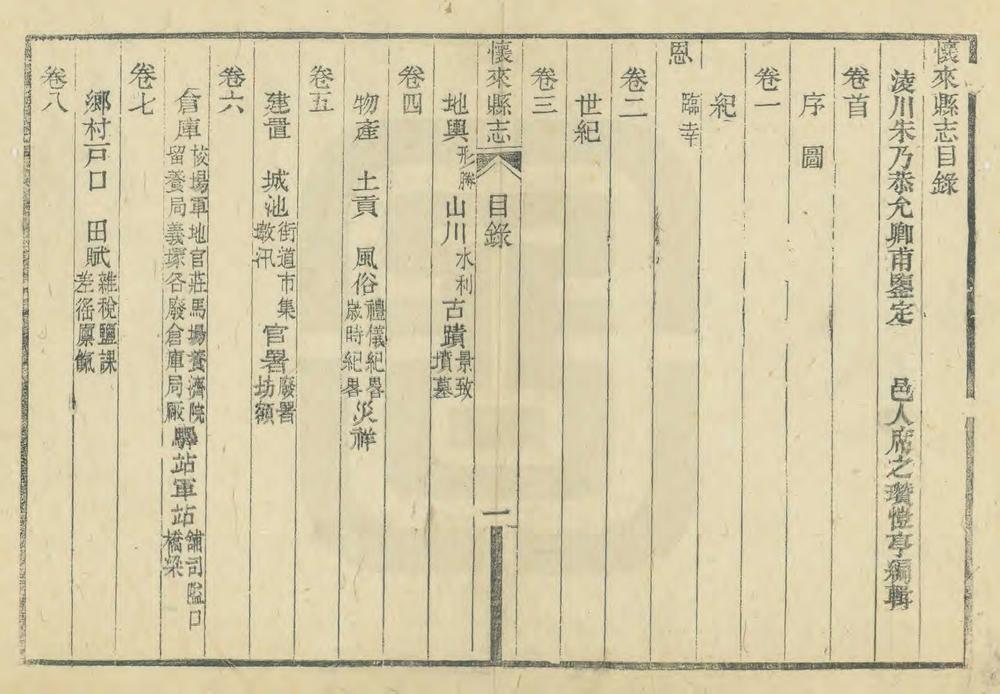 懷來縣志目錄
淩川朱乃恭允卿甫鑒定 邑人席之瓚愷亭編輯
卷首
序 圖
卷一
紀
恩 臨幸
卷二
世紀
卷三
懷來縣志 目錄 一
地輿 形勝 山川 水利 古蹟 景致 墳墓
卷四
物產 土貢 風俗 禮儀紀畧 歲時紀畧 災祥
卷五
建置 城池 街道市集 墩汛 官署 廢署 坊額
卷六
倉庫 校場軍地官莊馬場養濟院 留養局義塚各廢倉庫局廠 驛站軍站 舖司隘口 橋梁
卷七
鄉村戸口 田賦 雜稅鹽課 差徭廩餼
卷八